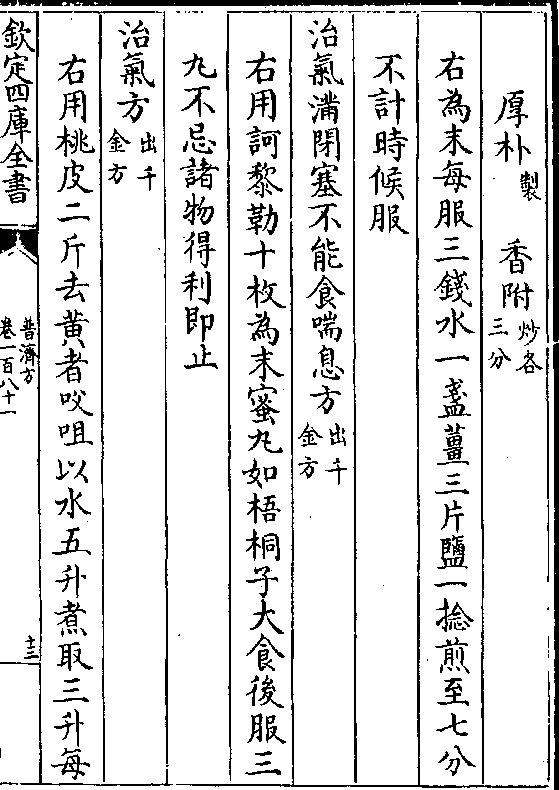 厚朴製 香附炒各三分
右為末每服三錢水一盞薑三片鹽一捻煎至七分
不計時候服
治氣滿閉塞不能食喘息方出千金方
右用訶黎勒十枚為末蜜丸如梧桐子大食後服三
丸不忌諸物得利即止
治氣方出千金方
右用桃皮二斤去黄者㕮咀以水五升煮取三升每
欽定四庫全書 普濟方 卷一百八十一 十三